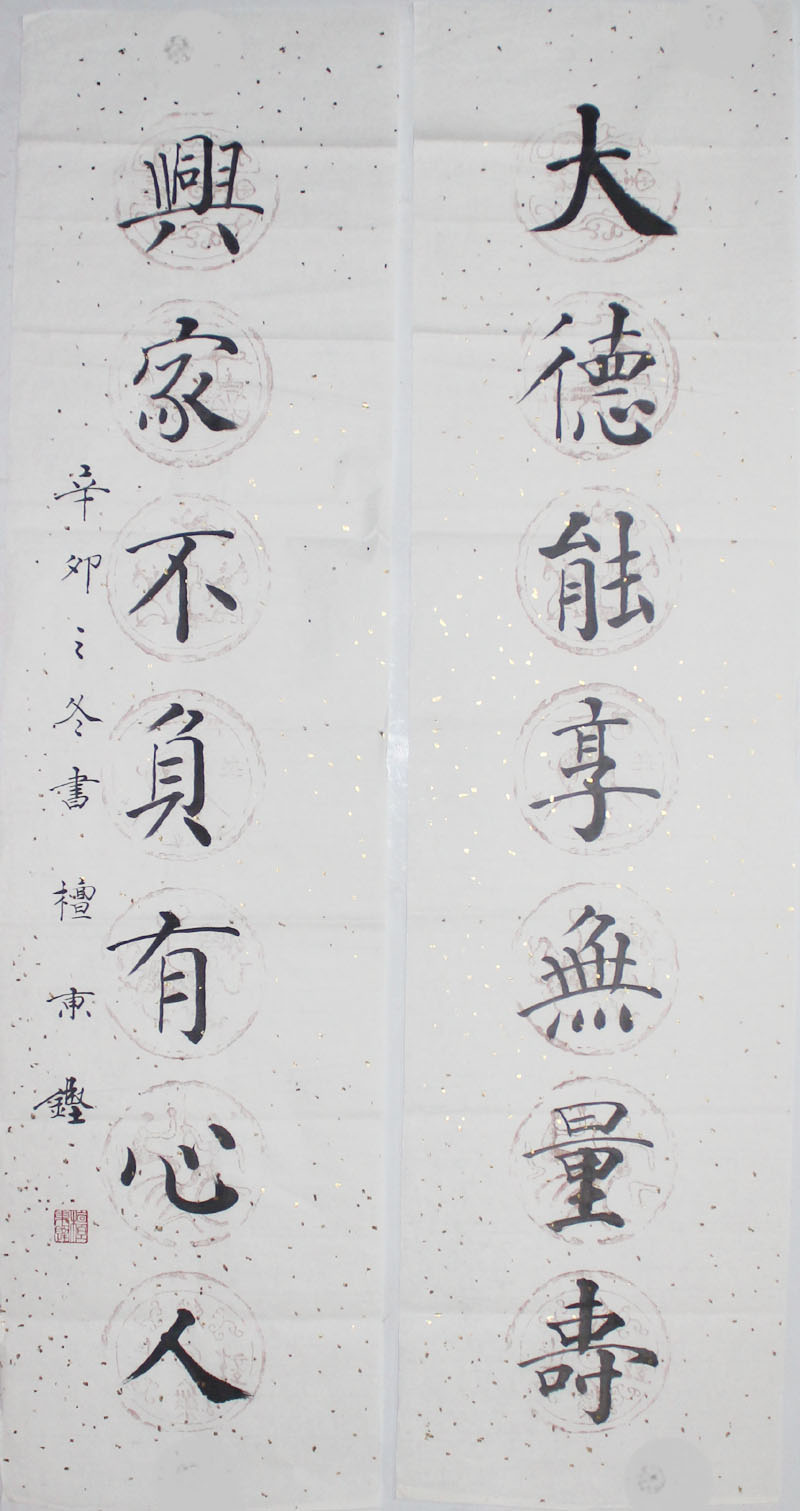 大德能享無量壽
興家不負有心人
辛卯之冬書 檀東